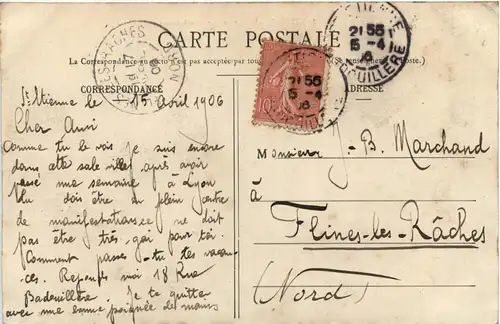 CARTE POSTALE
La Correspondance au recto n'est pas acceptée par
CORRESPONDANCE
ADRESSE
St Etienne le 15 avril 1906
Cher Ami
Comme tu le vois je suis encore
dans cette sale ville, après avoir
passé une semaine à Lyon
tu dois être en plein centre
de manifestations ce ne doit
pas être très gai pour toi.
Comment passes-tu tes vacan-
ces. Réponds moi 18 Rue
Badouillère. Je te quitte
avec une bonne poignée de mains
Monsieur J-B. Marchand
à
Flines-les-Râches
(Nord)
21 55
15 -4
06
21 55
15 -4
06